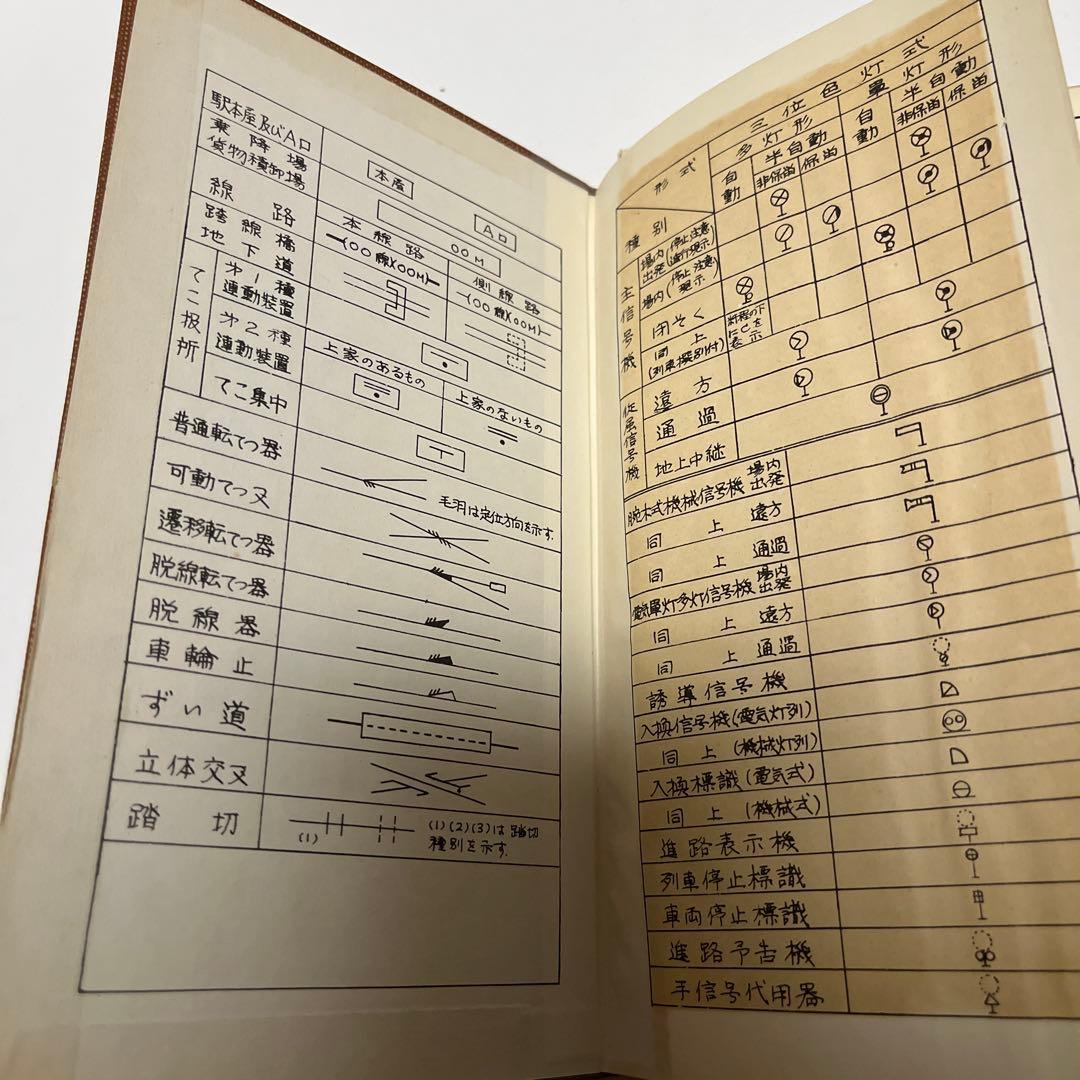 駅本屋及びA口
本屋
A口
乗降場
貨物積卸場
OOM
線路
本線路
(OO線)(OOM)
側線路
(OO線)(OOM)
跨線橋
地下道
てこ扱所
第1種
連動装置
第2種
連動装置
上家のあるもの
上家のないもの
てこ集中
普通転てつ器
毛羽は定位方向を示す.
可動てつ叉
遷移転てつ器
脱線転てつ器
脱線器
車輪止
ずい道
立体交叉
踏切
(1)
(1)(2)(3)は踏切
種別を示す.
三位色灯式
形式
多灯形
単灯形
自動
半自動
非保留
保留
自動
半自動
非保留
保留
種別
主信号機
場内
出発
(停止注意
進行現示)
場内
(停止注意
現示)
閉そく
同上
(列車撰別付)
斜程の下
にCを
表示
従属信号機
遠方
通過
地上中継
腕木式機械信号機 場内
出発
同上 遠方
同上 通過
電気単灯多灯信号機 場内
出発
同上 遠方
同上 通過
誘導信号機
入換信号機(電気灯列)
同上(機械灯列)
入換標識(電気式)
同上(機械式)
進路表示機
列車停止標識
車両停止標識
進路予告機
手信号代用器